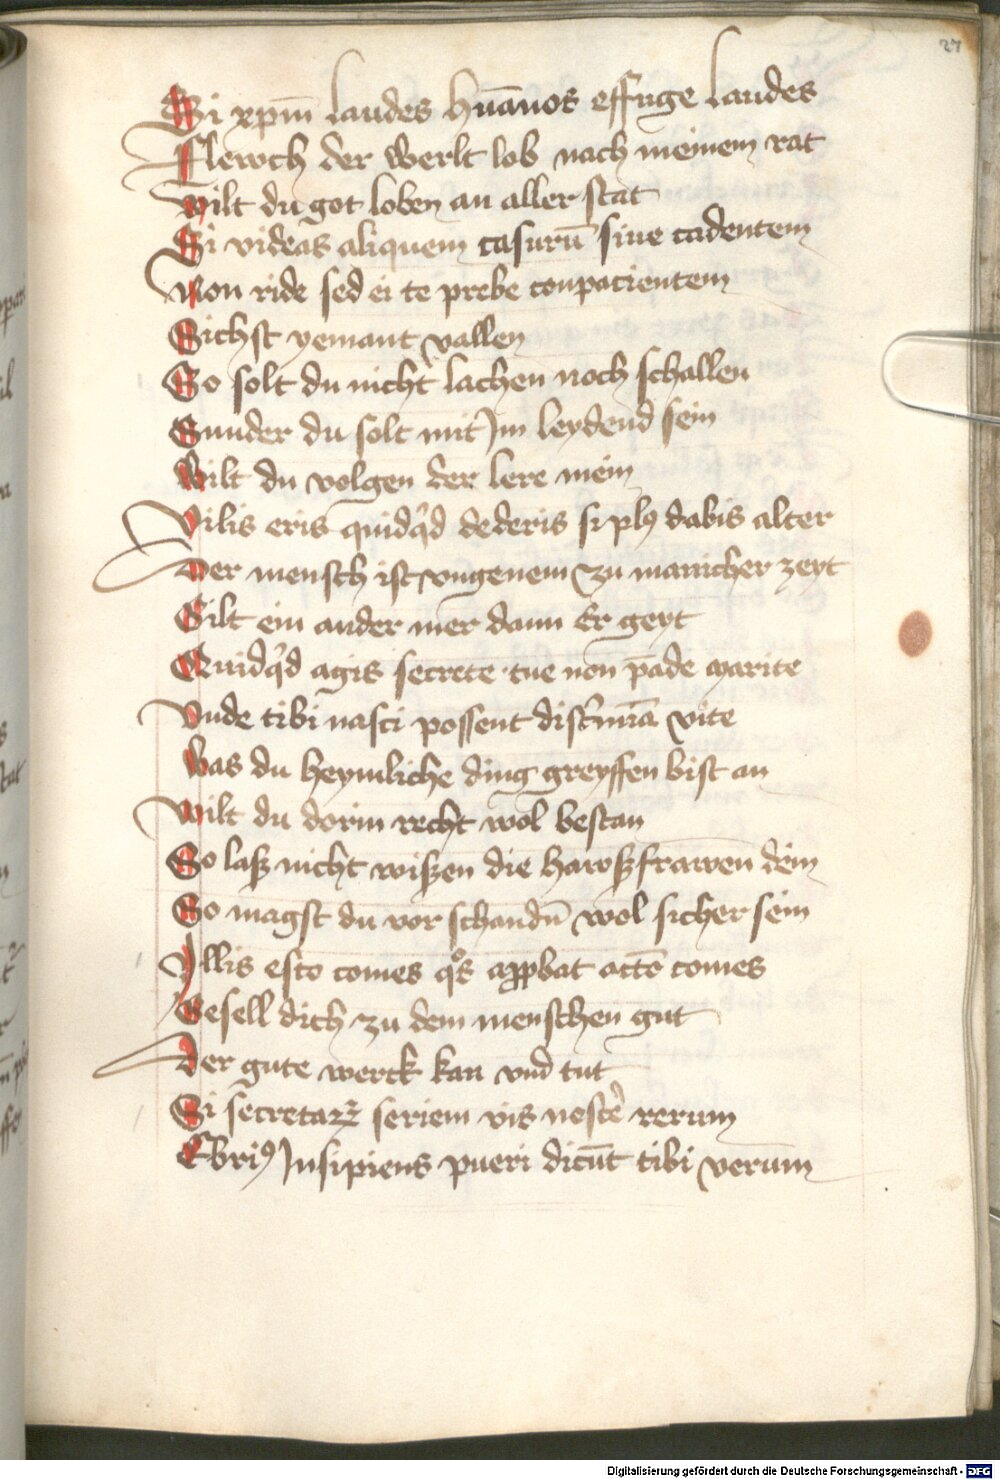 27
Si xpm̄ laudes hūanos effuge laudes
Flewch der werlt lob nach meinem rat
wilt du got loben an aller stat
Si videas aliquem casurū siue cadentem
Non ride sed ei te prebe conpacientem
Sichst yemant vallen
So solt du nicht lachen noch schallen
Sunder du solt mit Im leydend sein
Wilt du volgen der lere mein
Vilis eris quidq̇d dederis si plꝰ dabis alter
Der mensch ist vngenem zu manicher zeyt
Gilt ein ander mer dann Er geyt
Quidq̇d agis secrete tue non pāde marite
Vnde tibi nasci possent discͥmīa vite
Was du heymliche ding greyffen bist an
Wilt du dorin recht wol bestan
So laß nicht wißen die hawßfrawen dein
So magst du vor schandn̄ wol sicher sein
Illis esto comes qͦs apꝓbat actō comes
Gesell dich zu dem menschen gut
Der gute werck kan vnd tut
Si secretaꝝ seriem vis nescͥe rerum
Ebriꝰ Insipiens pueri dicūt tibi verum
Digitalisierung gefördert durch die Deutsche Forschungsgemeinschaft - DFG